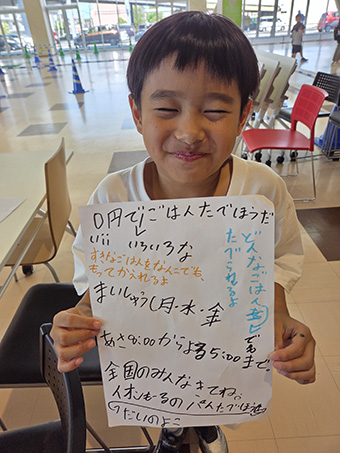 0円でごはんたべほうだ
いii いろいろな
すきなごはんをなんこでも、
もってかえれるよ
どんなごはん
でも
たべられるよ
まいしゅう月・水・金
あさ9:00からよる5:00まで
全国のみんなきてね。
イオンもーるの